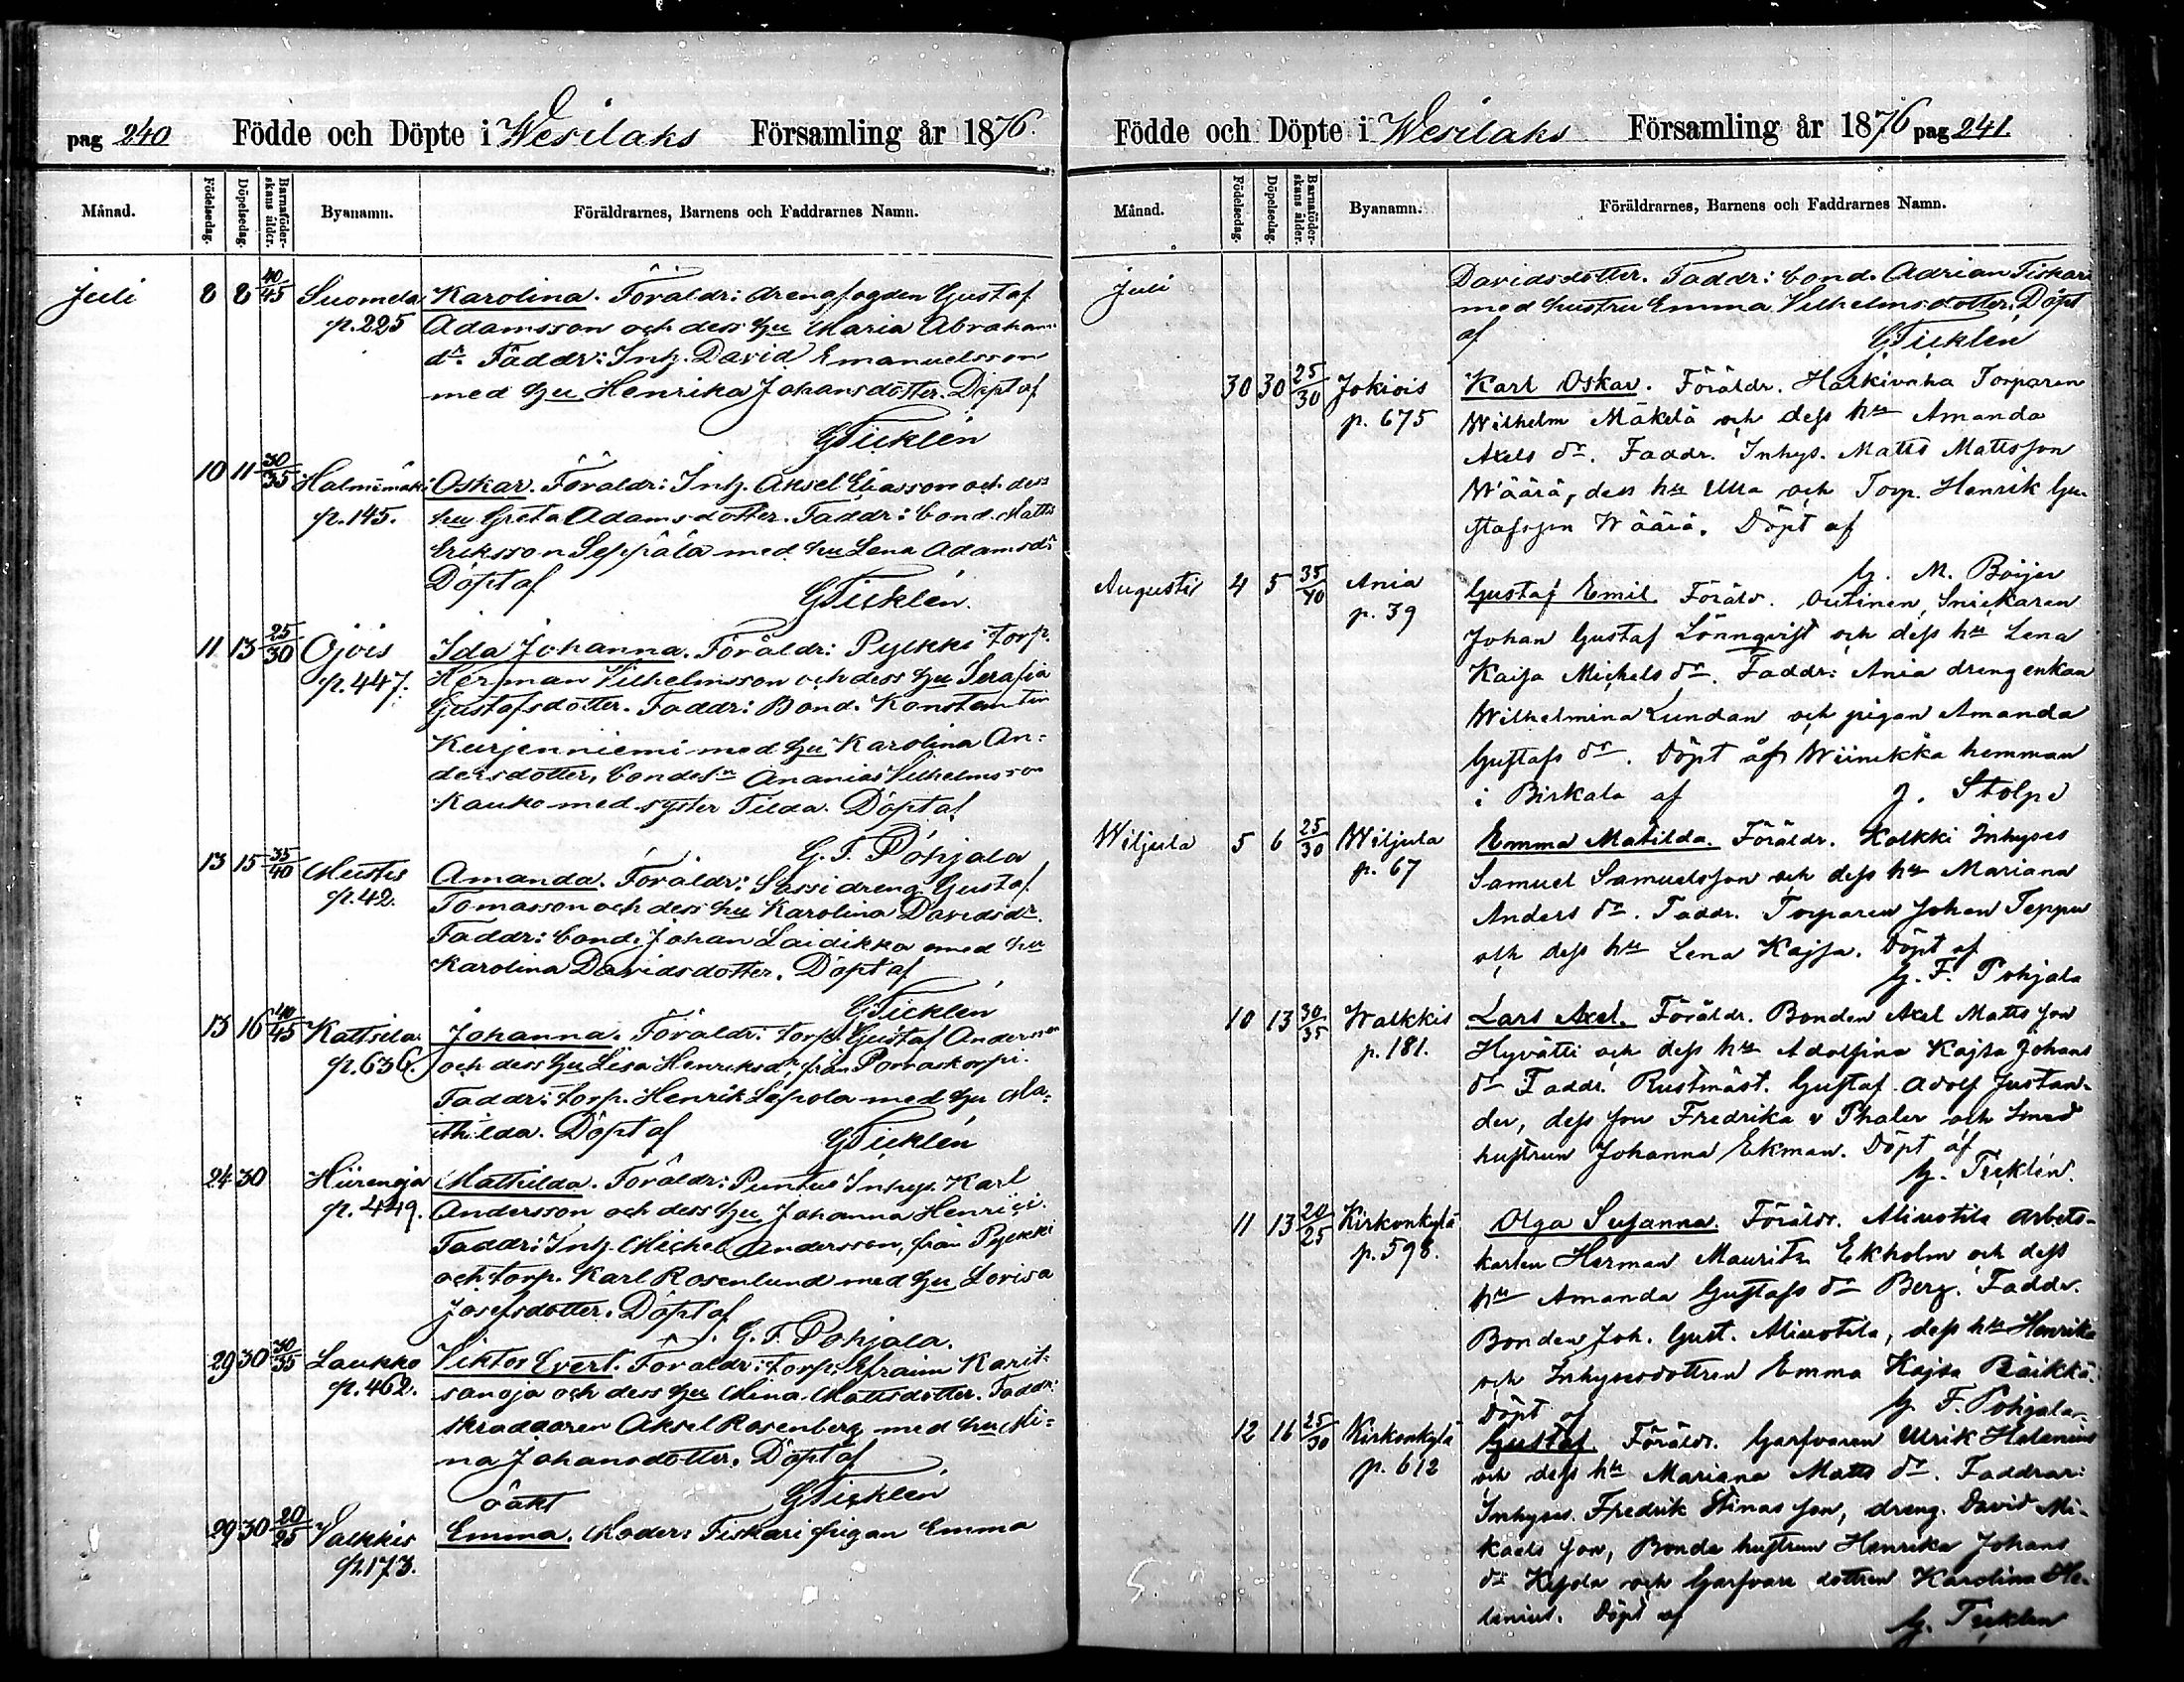 pag 240 Födde och Döpte i Wesilaks Församling år 1876.
Månad. Födelsedag. Döpelsedag. Barnaföderskans ålder. Byanamn. Föräldrarnes, Barnens och Faddrarnes Namn.
Juli 8 8 40/45 Suomela Karolina. Föräldr: drengfogden Gustaf
p. 225 Adamsson och dess hu Maria Abrahams
dr. Faddr: Inh. David Emanuelsson
med hu Henrika Johansdotter. Döpt af
G Ticklén
10 11 30/35 Halmimäki Oskar. Föräldr: Inh. Aksel Eliasson och dess
p. 145. hu Greta Adamsdotter. Faddr: bond. Matts
Eriksson Seppälä med hu Lena Adamsdr
Döpt af G Ticklén.
11 13 25/30 Ojois Ida Johanna. Föräldr: Pylkki torp.
p. 447. Herman Vilhelmsson och dess hu Serafia
Gustafsdotter. Faddr: Bond. Konstantin
Kurjenniemi med hu Karolina An-
dersdotter, bondesn Ananias Vilhelmsson
Kauko med syster Tilda. Döpt af
G. F. Pohjala
13 15 35/40 Mustis Amanda. Föräldr: Sassi dreng. Gustaf
p. 42. Tomasson och dess hu Karolina Davidsdr.
Faddr: bond. Johan Laidikka med hu
Karolina Davidsdotter. Döpt af
G Ticklén
13 16 40/45 Kattsila Johanna. Föräldr: torp. Gustaf Andersson
p. 636. och dess hu Lisa Henriksdr, från Porraskorpi.
Faddr: torp. Henrik Lepola med hu Ma-
thilda. Döpt af G Ticklén
24 30 Hiirenoja Mathilda. Föräldr: Puntus Inhys. Karl
p. 449. Andersson och dess hu Johanna Henrici.
Faddr: Inh. Michel Andersson, från Pylkki
och torp. Karl Rosenlund med hu Lovisa
Josefsdotter. Döpt af
G. F. Pohjala.
29 30 30/35 Laukko Viktor Evert. Föräldr: torp. Efraim Karit-
p. 462. sanoja och dess hu Mina Mattsdotter. Faddr:
skraddaren Aksel Rosenberg med hu Mi-
na Johansdotter. Döpt af
oäkt G Ticklén
29 30 20/25 Valkkis Emma. Moder: Tiskari pigan Emma
p. 173.
Födde och Döpte i Wesilaks Församling år 1876 pag 241.
Månad. Födelsedag. Döpelsedag. Barnaföderskans ålder. Byanamn. Föräldrarnes, Barnens och Faddrarnes Namn.
Juli Davidsdotter. Faddr: bond. Adrian Tiskari
med hustru Emma Vilhelmsdotter. Döpt
af G. Ticklén
30 30 25/30 Jokiois Karl Oskar. Föräldr. Halkivaha Torparen
p. 675 Wilhelm Mäkelä och dess hu Amanda
Axels dr. Faddr. Inhys. Matts Mattsson
Wäärä, dess hu Ulla och Torp. Henrik Gu-
stafsson Wäärä. Döpt af
G. M. Böijer
Augusti 4 5 35/40 Ania Gustaf Emil Föräld. Outinen, Snickaren
p. 39 Johan Gustaf Lönnqvist och dess hu Lena
Kaisa Michels dr. Faddr: Ania drengenkan
Wilhelmina Lundan och pigan Amanda
Gustafs dr. Döpt å Wiinikka hemman
i Birkala af J. Stolpe
Wiljula 5 6 25/30 Wiljula Emma Matilda. Föräldr. Kolkki Inhyses
p. 67 Samuel Samuelsson och dess hu Mariana
Anders dr. Faddr. Torparen Johan Teppu
och dess hu Lena Kajsa. Döpt af
G. F. Pohjala
10 13 30/35 Walkkis Lars Axel. Föräldr. Bonden Axel Matts son
p. 181. Hyvätti och dess hu Adolfina Kajsa Johans
dr Faddr. Rustmäst. Gustaf Adolf Justan-
der, dess fru Fredrika v Thaler och Smed
hustrun Johanna Ekman. Döpt af
G. Ticklén.
11 13 20/25 Kirkonkylä Olga Susanna. Föräldr. Alinotila arbets-
p. 598. karlen Herman Mauritz Ekholm och dess
hu Amanda Gustafs dr Berg. Faddr.
Bonden Joh. Gust. Alinotila, dess hu Henrika
och Inhysesdottren Emma Kajsa Räikkä.
Döpt af G. F. Pohjala
12 16 25/30 Kirkonkylä Gustaf Föräldr. Garfvaren Ulrik Helenius
p. 612 och dess hu Mariana Matts dr. Faddrar:
Inhyses Fredrik son, dreng. David Mi-
kaels son, Bonde hustrun Henrika Johans
dr och Garfvare dottren Karolina He-
lenius. Döpt af G. Ticklén